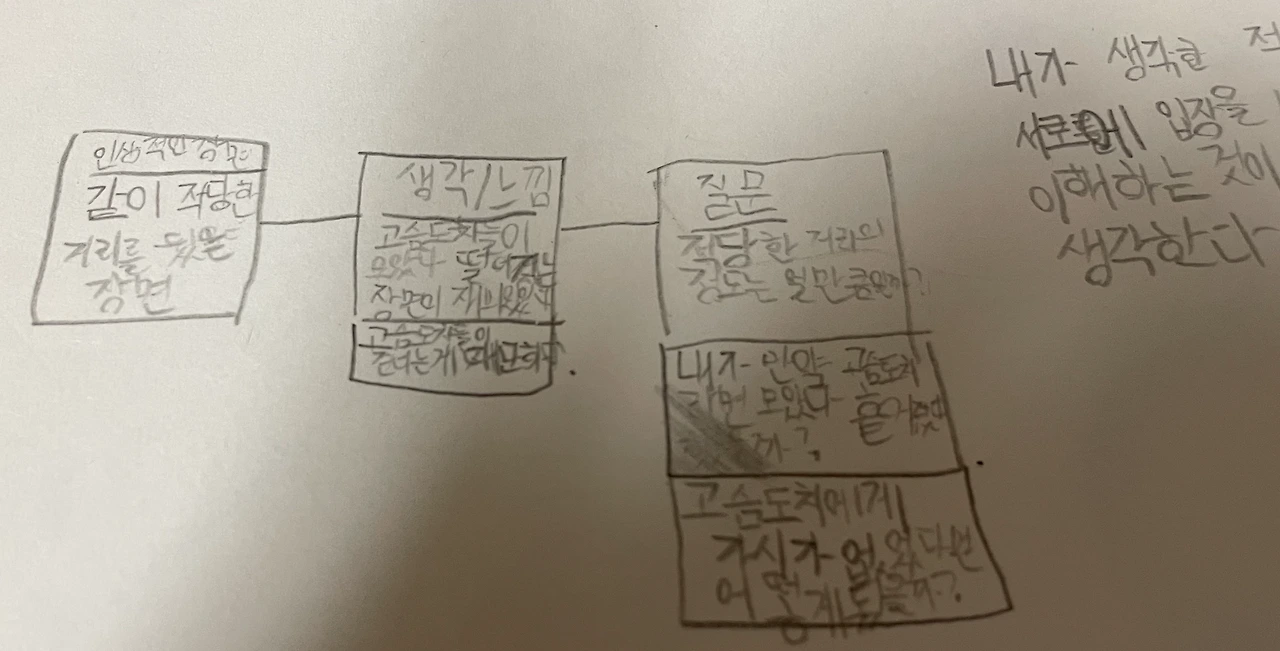 인상적인 장면
같이 적당한
거리를 뒀을
장면
생각/느낌
고슴도치들이
모았다 떨어지는
장면이 재미있었다
고슴도치들이
견디는게
질문
적당한 거리의
정도는 얼만큼일까?
내가 만약 고슴도치
라면 모았다 흩어졌
까?
고슴도치에게
가시가 없었다면
어떻게 됬을까?
내가 생각한 적
서로의 입장을
이해하는 것이
생각한다